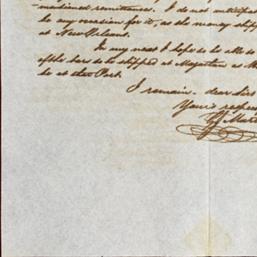 -mentioned remittances. I do not anticipat
be any occasion for it, as the money shipp
at New Orleans.
In my next I hope to be able to
of the bars to be shipped at Mazatlan at
be at that Port.
I remain - dear Sirs
Your's respec